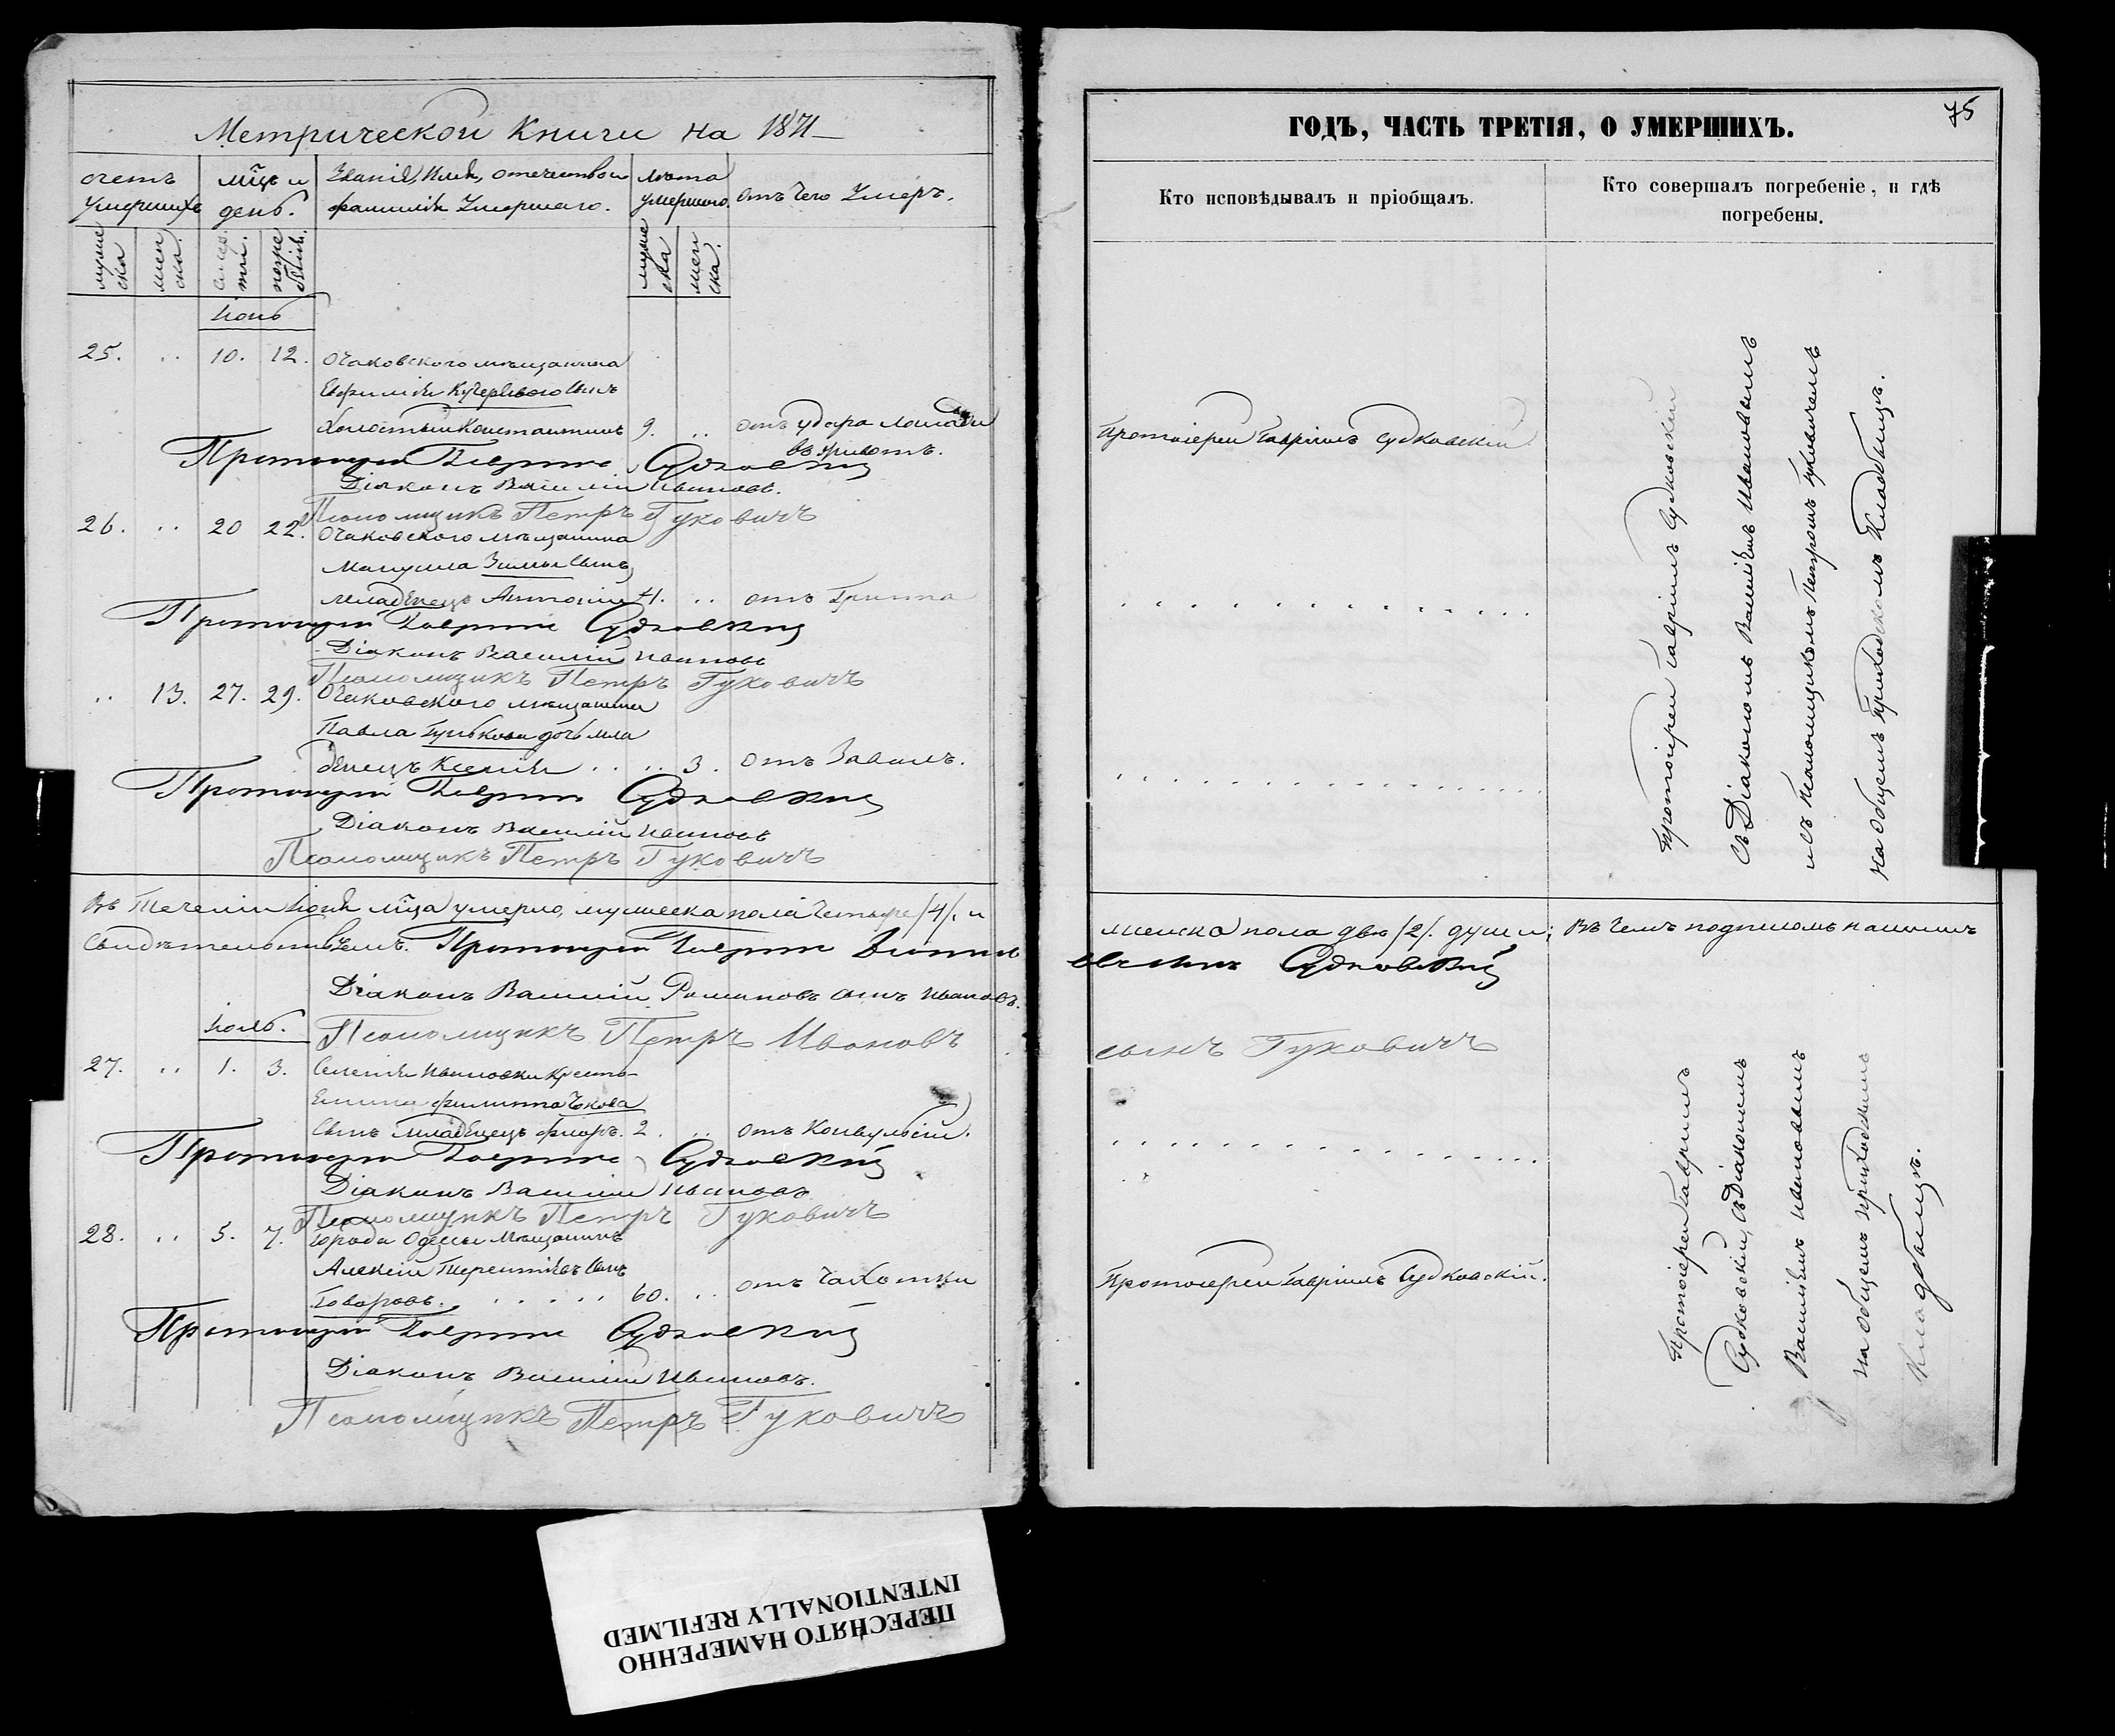 Метрической Книги на 1871
ГОДЪ, ЧАСТЬ ТРЕТІЯ, О УМЕРШИХЪ.
75
счетъ умершихъ
мужеска
женска.
мцъ и день.
смерти.
погребенія.
Званіе, Имя, отечество и фамилія Умершаго.
лѣта умершаго.
мужеска
женска.
отъ чего Умеръ.
Кто исповѣдывалъ и пріобщалъ.
Кто совершалъ погребеніе, и гдѣ
погребены.
Іюнь
25. .. 10. 12. Очаковского мѣщанина
Ефимія Кучерявого сынъ
Холостый Константинъ 9. .. отъ удара лошади
въ животъ.
Протоіерей Гавріилъ Судковскій
Протоіерей Гавріилъ Судковскій
Діаконъ Василій Ивановъ.
Псаломщикъ Петръ Гуковичъ
26. .. 20 22. Очаковского мѣщанина
Мануила Зимы сынъ
младенецъ Антоній 4. .. отъ Гриппа
Протоіерей Гавріилъ Судковскій
Діаконъ Василій Ивановъ
Псаломщикъ Петръ Гуковичъ
.. 13. 27. 29. Очаковского мѣщанина
Павла дочь мла
денецъ Ксенія .. .. 3. отъ Завалъ.
Протоіерей Гавріилъ Судковскій
Діаконъ Василій Ивановъ
Псаломщикъ Петръ Гуковичъ
Протоіерей Гавріилъ Судковскій
съ Діакономъ Василіемъ Ивановымъ
и съ Псаломщикомъ Петромъ Гуковичемъ
на общемъ приходскомъ кладбищѣ.
Въ теченіи Іюня мца умерло, мужеска пола четыре /4/, и
женска пола двѣ /2/. души; въ чемъ подписомъ нашимъ
свидѣтельствуемъ. Протоіерей Гавріилъ
Судковскій
Діаконъ Василій Романовъ сынъ Ивановъ.
Псаломщикъ Петръ Ивановъ
сынъ Гуковичъ
Іюль.
27. .. 1. 3. Селенія Ивановки Кресть
янина Филиппа Чкова
сынъ младенецъ 2. .. отъ Конвульсій.
Протоіерей Гавріилъ Судковскій
Діаконъ Василій Ивановъ
Псаломщикъ Петръ Гуковичъ
28. .. 5. 7. Города Одессы Мѣщанинъ
Алексій Терентіевъ сынъ
Говоровъ. 60. .. отъ Чахотки
Протоіерей Гавріилъ Судковскій.
Протоіерей Гавріилъ Судковскій
Діаконъ Василій Ивановъ.
Псаломщикъ Петръ Гуковичъ
Протоіерей Гавріилъ
Судковскій, съ Діакономъ
Василіемъ Ивановымъ
на общемъ приходскомъ
кладбищѣ.
ПЕРЕСНЯТО НАМЕРЕННО
INTENTIONALLY REFILMED